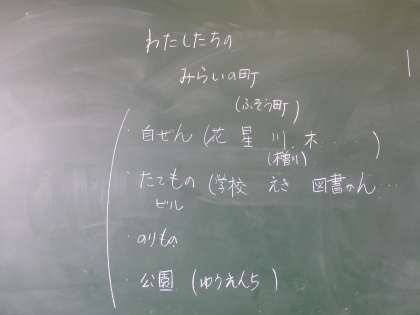 わたしたちの
みらいの町
(ふそう町)
・自ぜん (花 星 川 木 ・・・)
(木曽川)
・たてもの (学校 えき 図書かん…
ビル
・のりもの
・公園 (ゆうえんち)